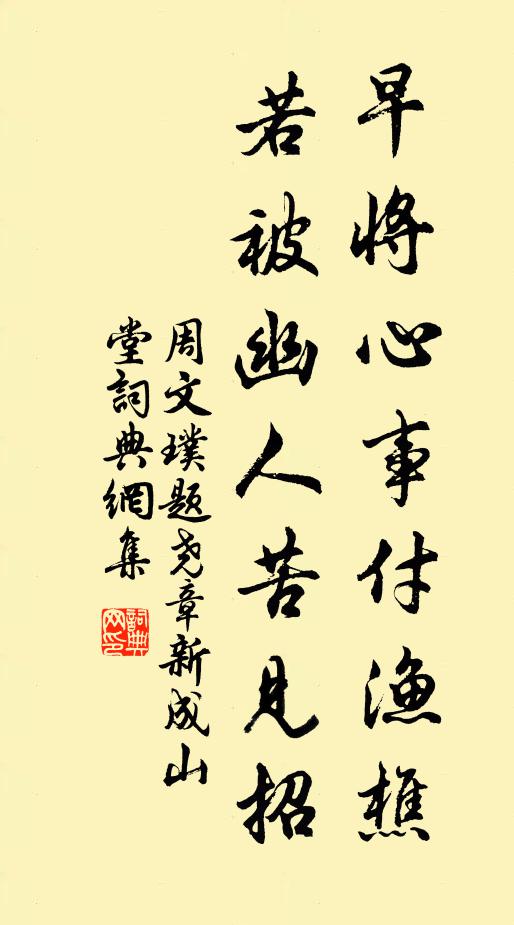 早將心事付漁樵
若被幽人苦見招
周文璞題尧章新成山
堂詞典網集
詞典網印